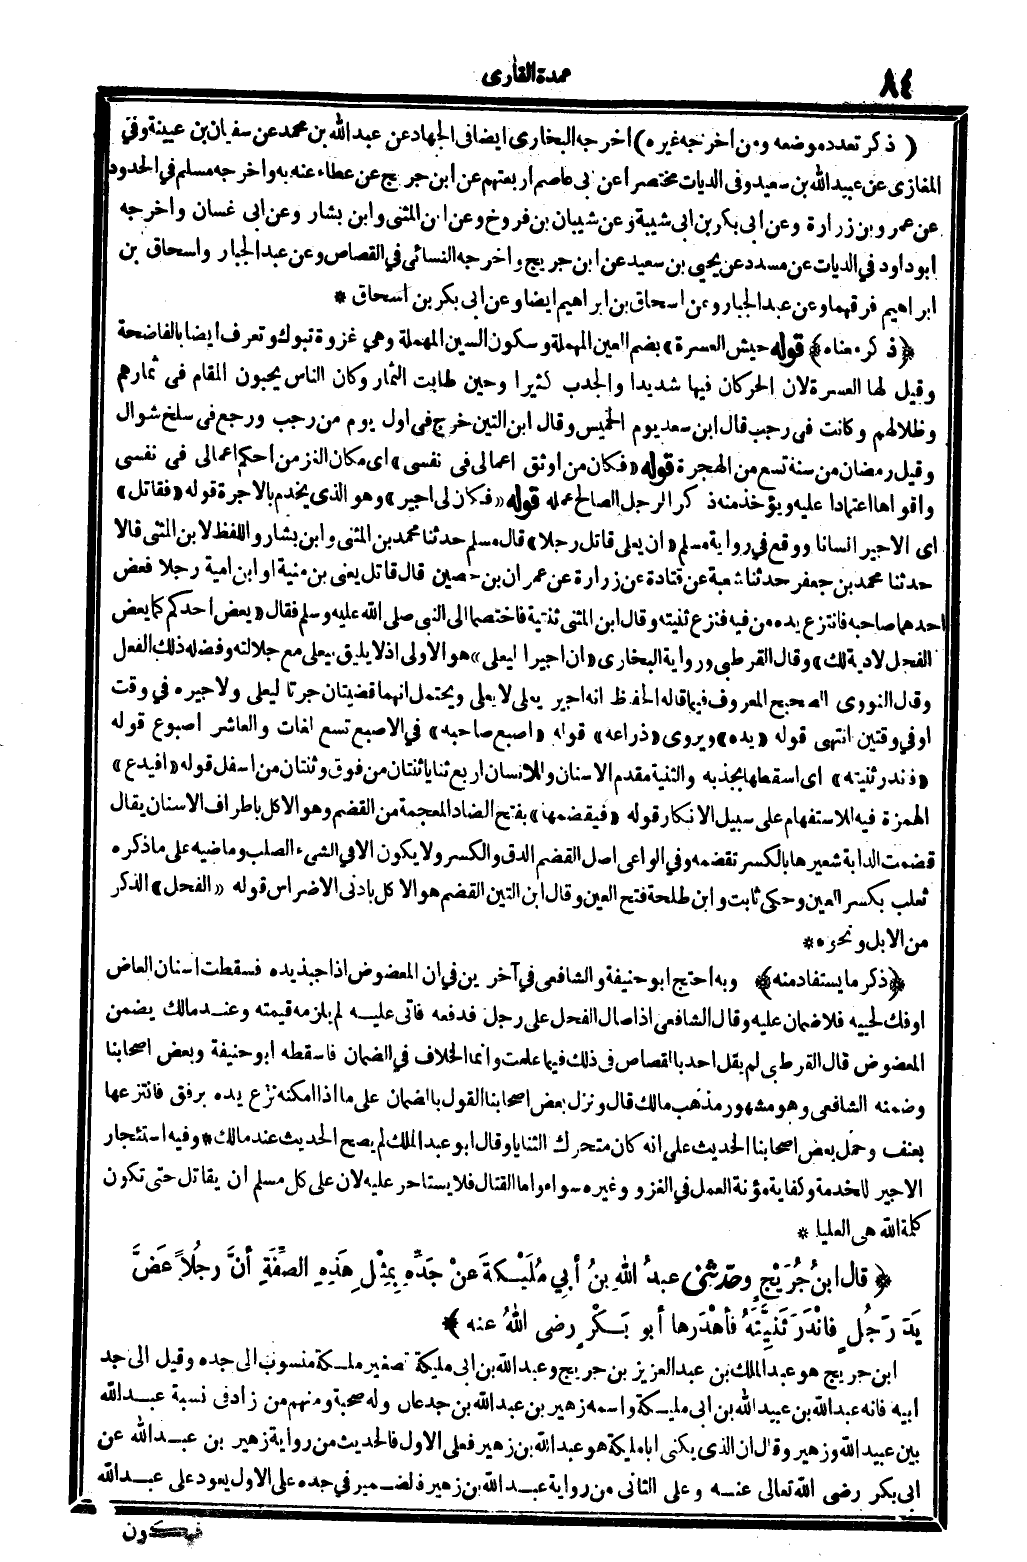 ٨٤
عمدة القارى
( ذكر تعدد موضعه ومن أخرجه غيره) أخرجه البخارى ايضا فى الجهاد عن عبد الله بن محمد عن سفيان بن عيينة وفي
المغازى عن عبيد الله بن سعيد وفى الديات مختصرا عن أبى عاصم أربعتهم عن ابن جريج عن عطاء عنه به وأخرجه مسلم في الحدود
عن عمرو بن زرارة وعن ابى بكر بن ابى شيبة وعن شيبان بن فروخ وعن ابن المثنى وابن بشار وعن ابى غسان وأخرجه
ابو داود في الديات عن مسدد عن يحيى بن سعيد عن ابن جريج وأخرجه النسائى في القصاص وعن عبد الجبار واسحاق بن
ابراهيم فرقهما وعن عبد الجبار وعن اسحاق بن ابراهيم ايضا وعن ابى بكر بن اسحاق *
﴿ذكر معناه﴾ قوله جيش العسرة» بضم العين المهملة وسكون السين المهملة وهي غزوة تبوك وتعرف ايضا بالفاضحة
وقيل لها العسرة لان الحر كان فيها شديدا والجدب كثيرا وحين طابت الثمار وكان الناس يحبون المقام فى ثمارهم
وظلالهم وكانت فى رجب قال ابن سعد يوم الخميس وقال ابن التين خرج فى اول يوم من رجب ورجع فى سلخ شوال
وقيل رمضان من سنة تسع من الهجرة قوله «فكان من اوثق اعمالى فى نفسى» اى مكان الغزو من احكم اعمالى فى نفسى
واقواها اعتمادا عليه ويؤخذ منه ذكر الرجل الصالح عمله قوله «فكان لى اجير» وهو الذى يخدم بالاجرة قوله «فقاتل»
اى الاجير انسانا ووقع في رواية مسلم «ان يعلى قاتل رجلا» قال مسلم حدثنا محمد بن المثنى وابن بشار واللفظ لابن المثنى قالا
حدثنا محمد بن جعفر حدثنا شعبة عن قتادة عن زرارة عن عمران بن حصين قال قاتل يعلى بن منية او ابن امية رجلا فعض
احدهما صاحبه فانتزع يده من فيه فنزع ثنيته وقال ابن المثنى ثنتية فاختصما الى النبى صلى الله عليه وسلم فقال «يعض احدكم كما يعض
الفحل لادية لك» وقال القرطبى ورواية البخارى «ان اجيرا ليعلى» هو الاولى اذ لا يليق بيعلى مع جلالته وفضله ذلك الفعل
وقال النووى الصحيح المعروف فيما قاله الحفاظ انه اجير يعلى لا يعلى ويحتمل انهما قضيتان جرتا ليعلى ولاجيره في وقت
او في وقتين انتهى قوله «يده» ويروى «ذراعه» قوله «اصبع صاحبه» في الاصبع تسع لغات والعاشر اصبوع قوله
«فندر ثنيته» اى اسقطها بجذبه والثنية مقدم الاسنان وللانسان اربع ثنايا ثنتان من فوق وثنتان من اسفل قوله «افيدع»
الهمزة فيه للاستفهام على سبيل الانكار قوله «فيقضمها» بفتح الضاد المعجمة من القضم وهو الاكل باطراف الاسنان يقال
قضمت الدابة شعيرها بالكسر تقضمه وفي الواعى اصل القضم الدق والكسر ولا يكون الا في الشىء الصلب وماضيه على ما ذكره
ثعلب بكسر العين وحكى ثابت وابن طلحة فتح العين وقال ابن التين القضم هو الاكل بادنى الاضراس قوله «الفحل» الذكر
من الابل ونحوه *
﴿ذكر ما يستفاد منه﴾ وبه احتج ابو حنيفة والشافعى في آخرين في ان المعضوض اذا جبذ يده فسقطت اسنان العاض
او فك لحييه فلا ضمان عليه وقال الشافعى اذا صال الفحل على رجل فدفعه فاتى عليه لم يلزمه قيمته وعند مالك يضمن
المعضوض قال القرطبى لم يقل احد بالقصاص فى ذلك فيما علمت وانما الخلاف في الضمان فاسقطه ابو حنيفة وبعض اصحابنا
وضمنه الشافعى وهو مشهور مذهب مالك قال ونزل بعض اصحابنا القول بالضمان على ما اذا امكنه نزع يده برفق فانتزعها
بعنف وحمل بعض اصحابنا الحديث على انه كان متحرك الثنايا وقال ابو عبد الملك لم يصح الحديث عند مالك * وفيه استئجار
الاجير للخدمة وكفاية مؤنة العمل في الغزو وغيره سواء واما القتال فلا يستاجر عليه لان على كل مسلم ان يقاتل حتى تكون
كلمة الله هى العليا *
﴿ قال ابنُ جُرَيْجٍ وحدثنى عبدُ اللهِ بنُ أبي مُلَيْكةَ عنْ جَدِّهِ بِمِثْلِ هَذِهِ الصِّفَةِ أنَّ رجُلاً عَضَّ
يَدَ رَجُلٍ فانْدَرَ ثَنِيَّتَهُ فأهْدَرها أبو بَكْرٍ رضى اللهُ عنه ﴾
ابن جريج هو عبد الملك بن عبد العزيز بن جريج وعبد الله بن ابى مليكة تصغير ملكة منسوب الى جده وقيل الى جد
ابيه فانه عبد الله بن عبيد الله بن ابى مليكة واسمه زهير بن عبد الله بن جدعان وله صحبة ومنهم من زاد فى نسبة عبد الله
بين عبيد الله وزهير وقال ان الذى يكنى ابا مليكة هو عبد الله بن زهير فعلى الاول فالحديث من رواية زهير بن عبد الله عن
ابى بكر رضى الله تعالى عنه وعلى الثانى من رواية عبد الله بن زهير فالضمير في جده على الاول يعود على عبد الله
فيكون